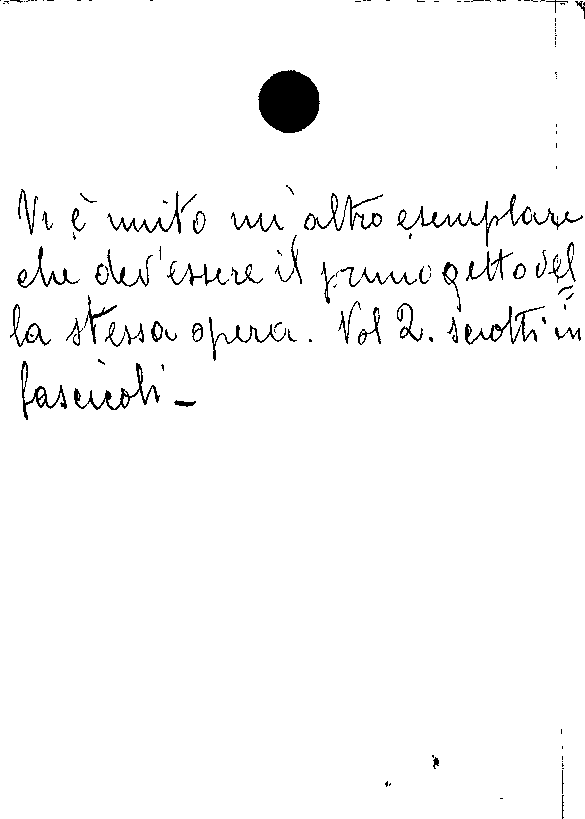 Vi è unito un'altro esemplare
che dev'essere il primo getto del
la stessa opera. Vol 2. sciolti in
fascicoli –